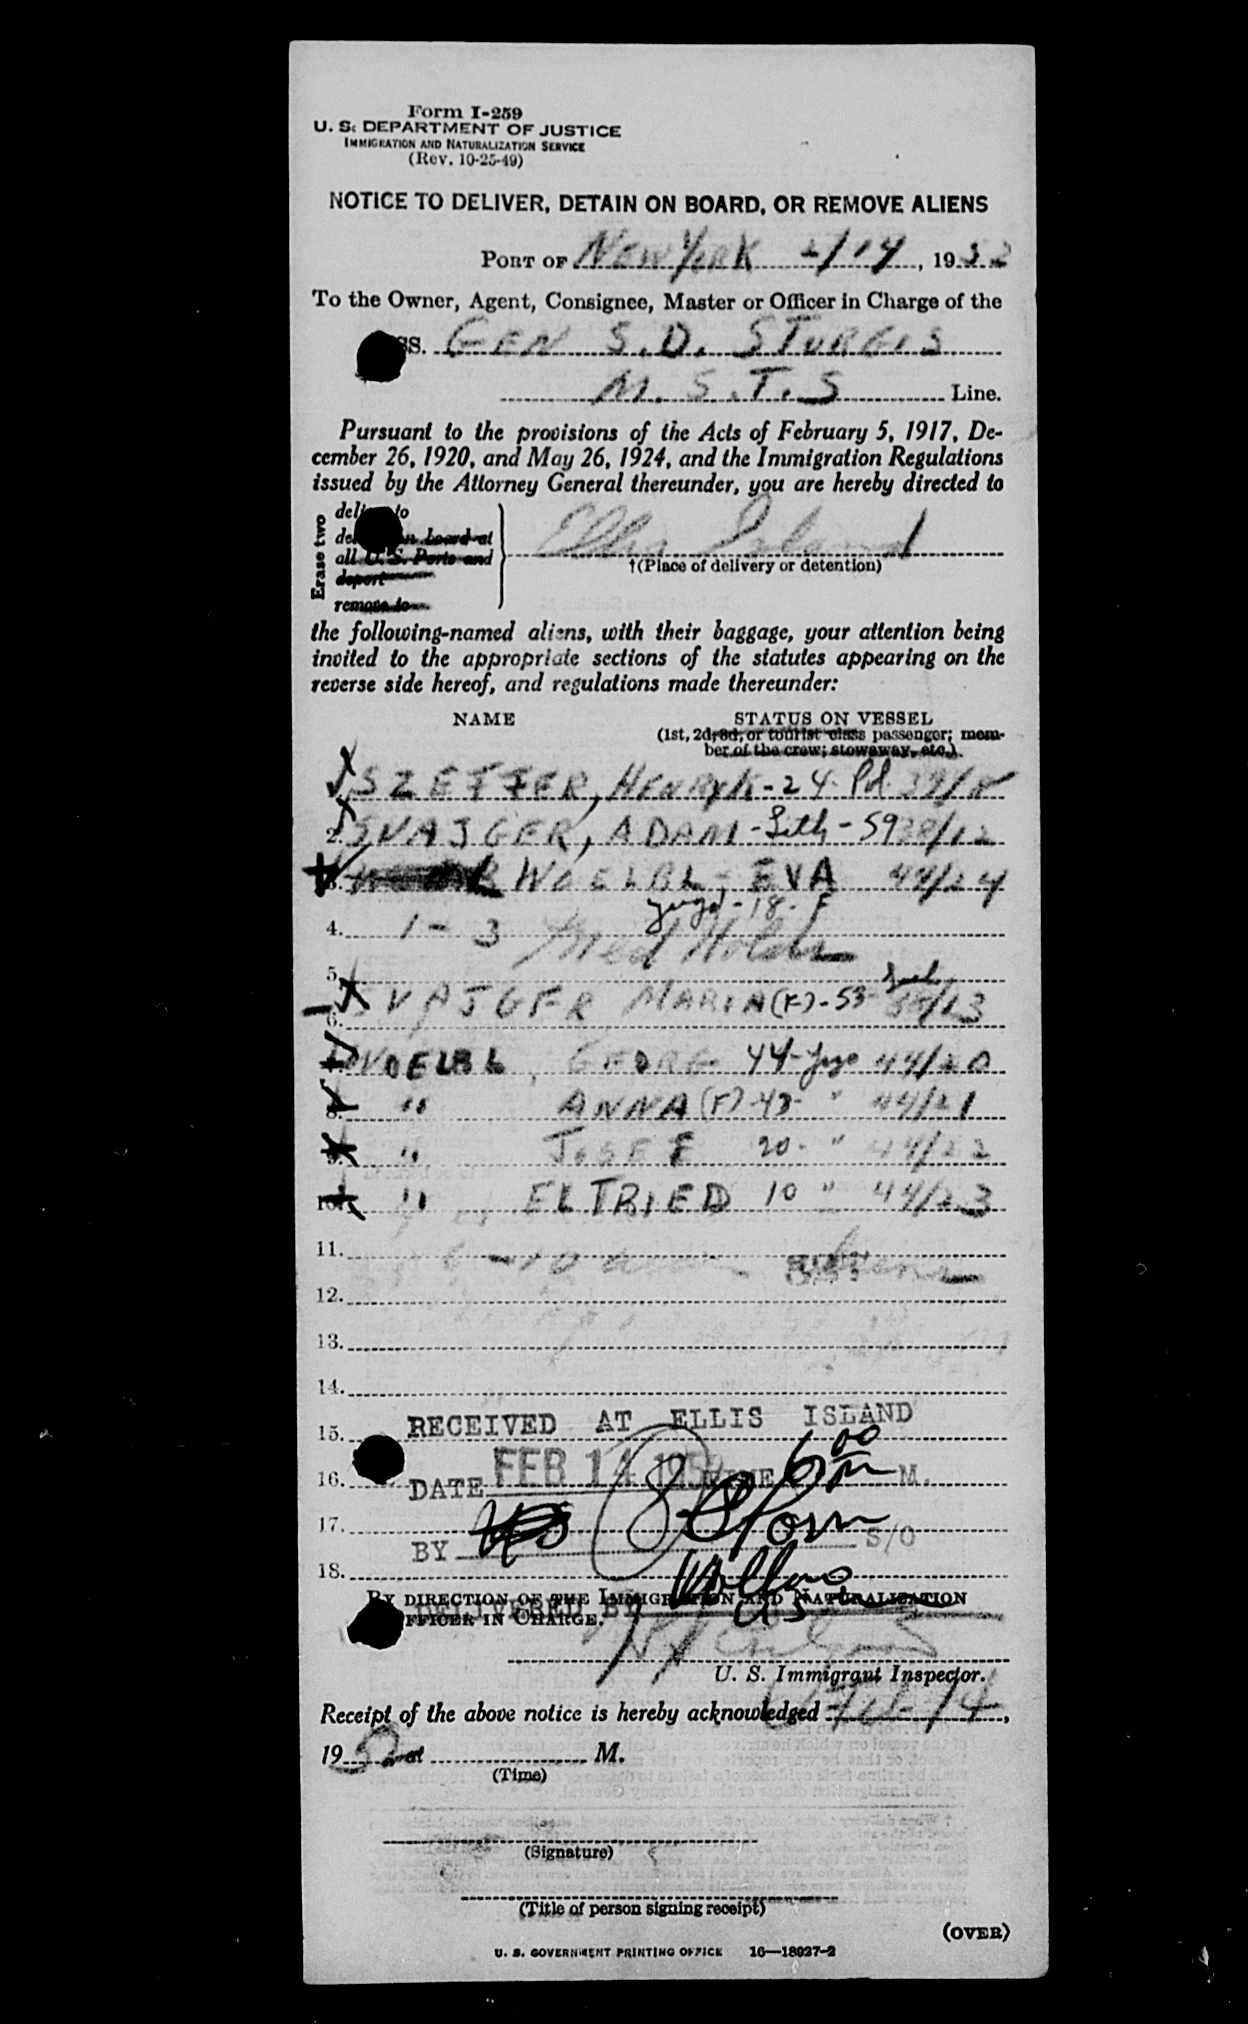 Form I-259
U. S. DEPARTMENT OF JUSTICE
IMMIGRATION AND NATURALIZATION SERVICE
(Rev. 10-25-49)
NOTICE TO DELIVER, DETAIN ON BOARD, OR REMOVE ALIENS
PORT OF NEW YORK 2/14, 1952
To the Owner, Agent, Consignee, Master or Officer in Charge of the
SS. GEN S.D. STURGIS
M.S.T.S Line.
Pursuant to the provisions of the Acts of February 5, 1917, De-
cember 26, 1920, and May 26, 1924, and the Immigration Regulations
issued by the Attorney General thereunder, you are hereby directed to
Erase two
deliver to
detain on board at
all U.S. Ports and
deport
remove to
Ellis Island
†(Place of delivery or detention)
the following-named aliens, with their baggage, your attention being
invited to the appropriate sections of the statutes appearing on the
reverse side hereof, and regulations made thereunder:
NAME STATUS ON VESSEL
(1st, 2d, 3d, or tourist class passenger; mem-
ber of the crew; stowaway, etc.)
SZEFFER, HENRYK - 24 - Pol 39/8
2. SVAJGER, ADAM - Lith - 59 38/12
3. WOELBL - EVA 44/24
Yugo - 18 - F
4. 1 - 3 Med Hold
5.
6. SVAJGER MARIA (F) - 53 38/13
VOELBL, GEORG 44 - Yugo 44/20
8. " ANNA (F) 43 - " 44/21
9. " JOSEF 20 - " 44/22
10. " ELFRIED 10 " 44/23
11. 6 - 10
12.
13.
14.
15. RECEIVED AT ELLIS ISLAND
16. DATE FEB 14 1952 TIME 6 00 P M.
17.
BY S/O
18.
DELIVERED BY
BY DIRECTION OF THE IMMIGRATION AND NATURALIZATION
OFFICER IN CHARGE.
U. S. Immigrant Inspector.
Receipt of the above notice is hereby acknowledged Feb 14,
1952 at M.
(Time)
(Signature)
(Title of person signing receipt)
(OVER)
U. S. GOVERNMENT PRINTING OFFICE 16—18027-2